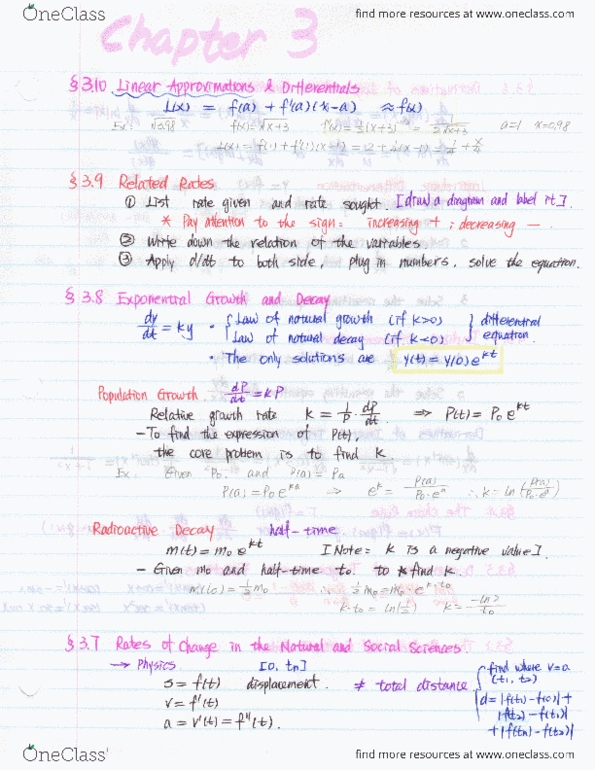 OneClass
find more resources at www.oneclass.com
Chapter 3
§ 3.10 Linear Approximations & Differentials
L(x) = f(a) + f'(a)(x-a) ≈ f(x)
Ex: √0.98 f(x)=√x+3 f'(x)=½(x+3) = 1/2√x+3 a=1 x=0.98
L(x) = f(1) + f'(1)(x-1) = 2 + ¼(x-1) = + x/4
§ 3.9 Related Rates
① List rate given and rate sought. [draw a diagram and label it.]
* Pay attention to the sign: increasing + ; decreasing —.
② Write down the relation of the variables
③ Apply d/dt to both side, plug in numbers, solve the equation.
§ 3.8 Exponential Growth and Decay
dy/dt = ky • { Law of natural growth (if k>0) } differential
Law of natural decay (if k<0) equation.
• The only solutions are y(t) = y(0) e^kt
Population Growth. dP/dt = kP
Relative growth rate k = 1/P · dP/dt ⇒ P(t) = P₀ e^kt
- To find the expression of P(t),
the core problem is to find k.
Ex. Given P₀, and P(a) = Pa
P(a) = P₀ e^ka ⇒ e^k = P(a)/P₀·e^a ∴ k = ln (P(a)/P₀·e^a)
Radioactive Decay half-time
m(t) = m₀ e^kt [Note: k is a negative value].
- Given m₀ and half-time t₀. to find k.
m(t₀) = ½m₀ ∴ ½m₀ = m₀ · e^k·t₀
k·t₀ = ln(½) k = -ln2/t₀
§ 3.7 Rates of Change in the Natural and Social Sciences
→ Physics. [0, tn]
s = f(t) displacement. ≠ total distance { find where v=0
v = f'(t) (t₁, t₂)
a = v'(t) = f''(t). d = |f(t₁) - f(0)| +
|f(t₂) - f(t₁)|
+ |f(tn) - f(t₂)|
OneClass
find more resources at www.oneclass.com